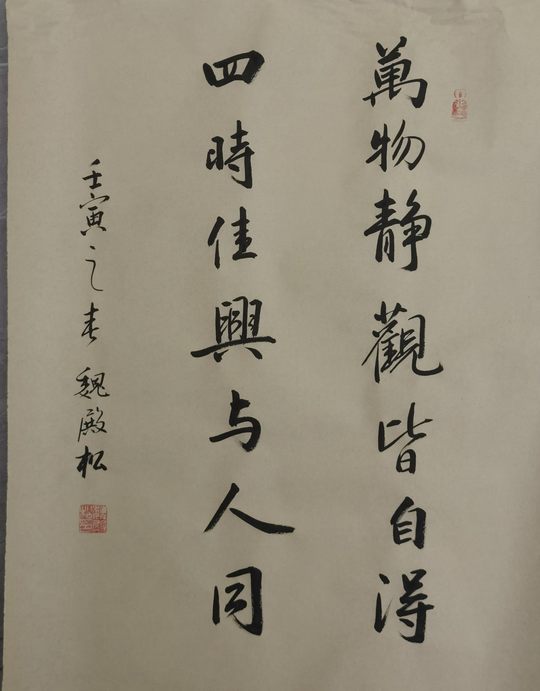 萬物静觀皆自得
四時佳興与人同
壬寅之春 魏殿松